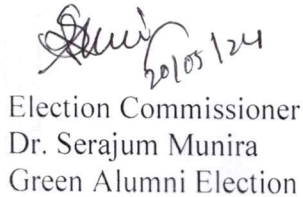 20/05/24
Election Commissioner
Dr. Serajum Munira
Green Alumni Election